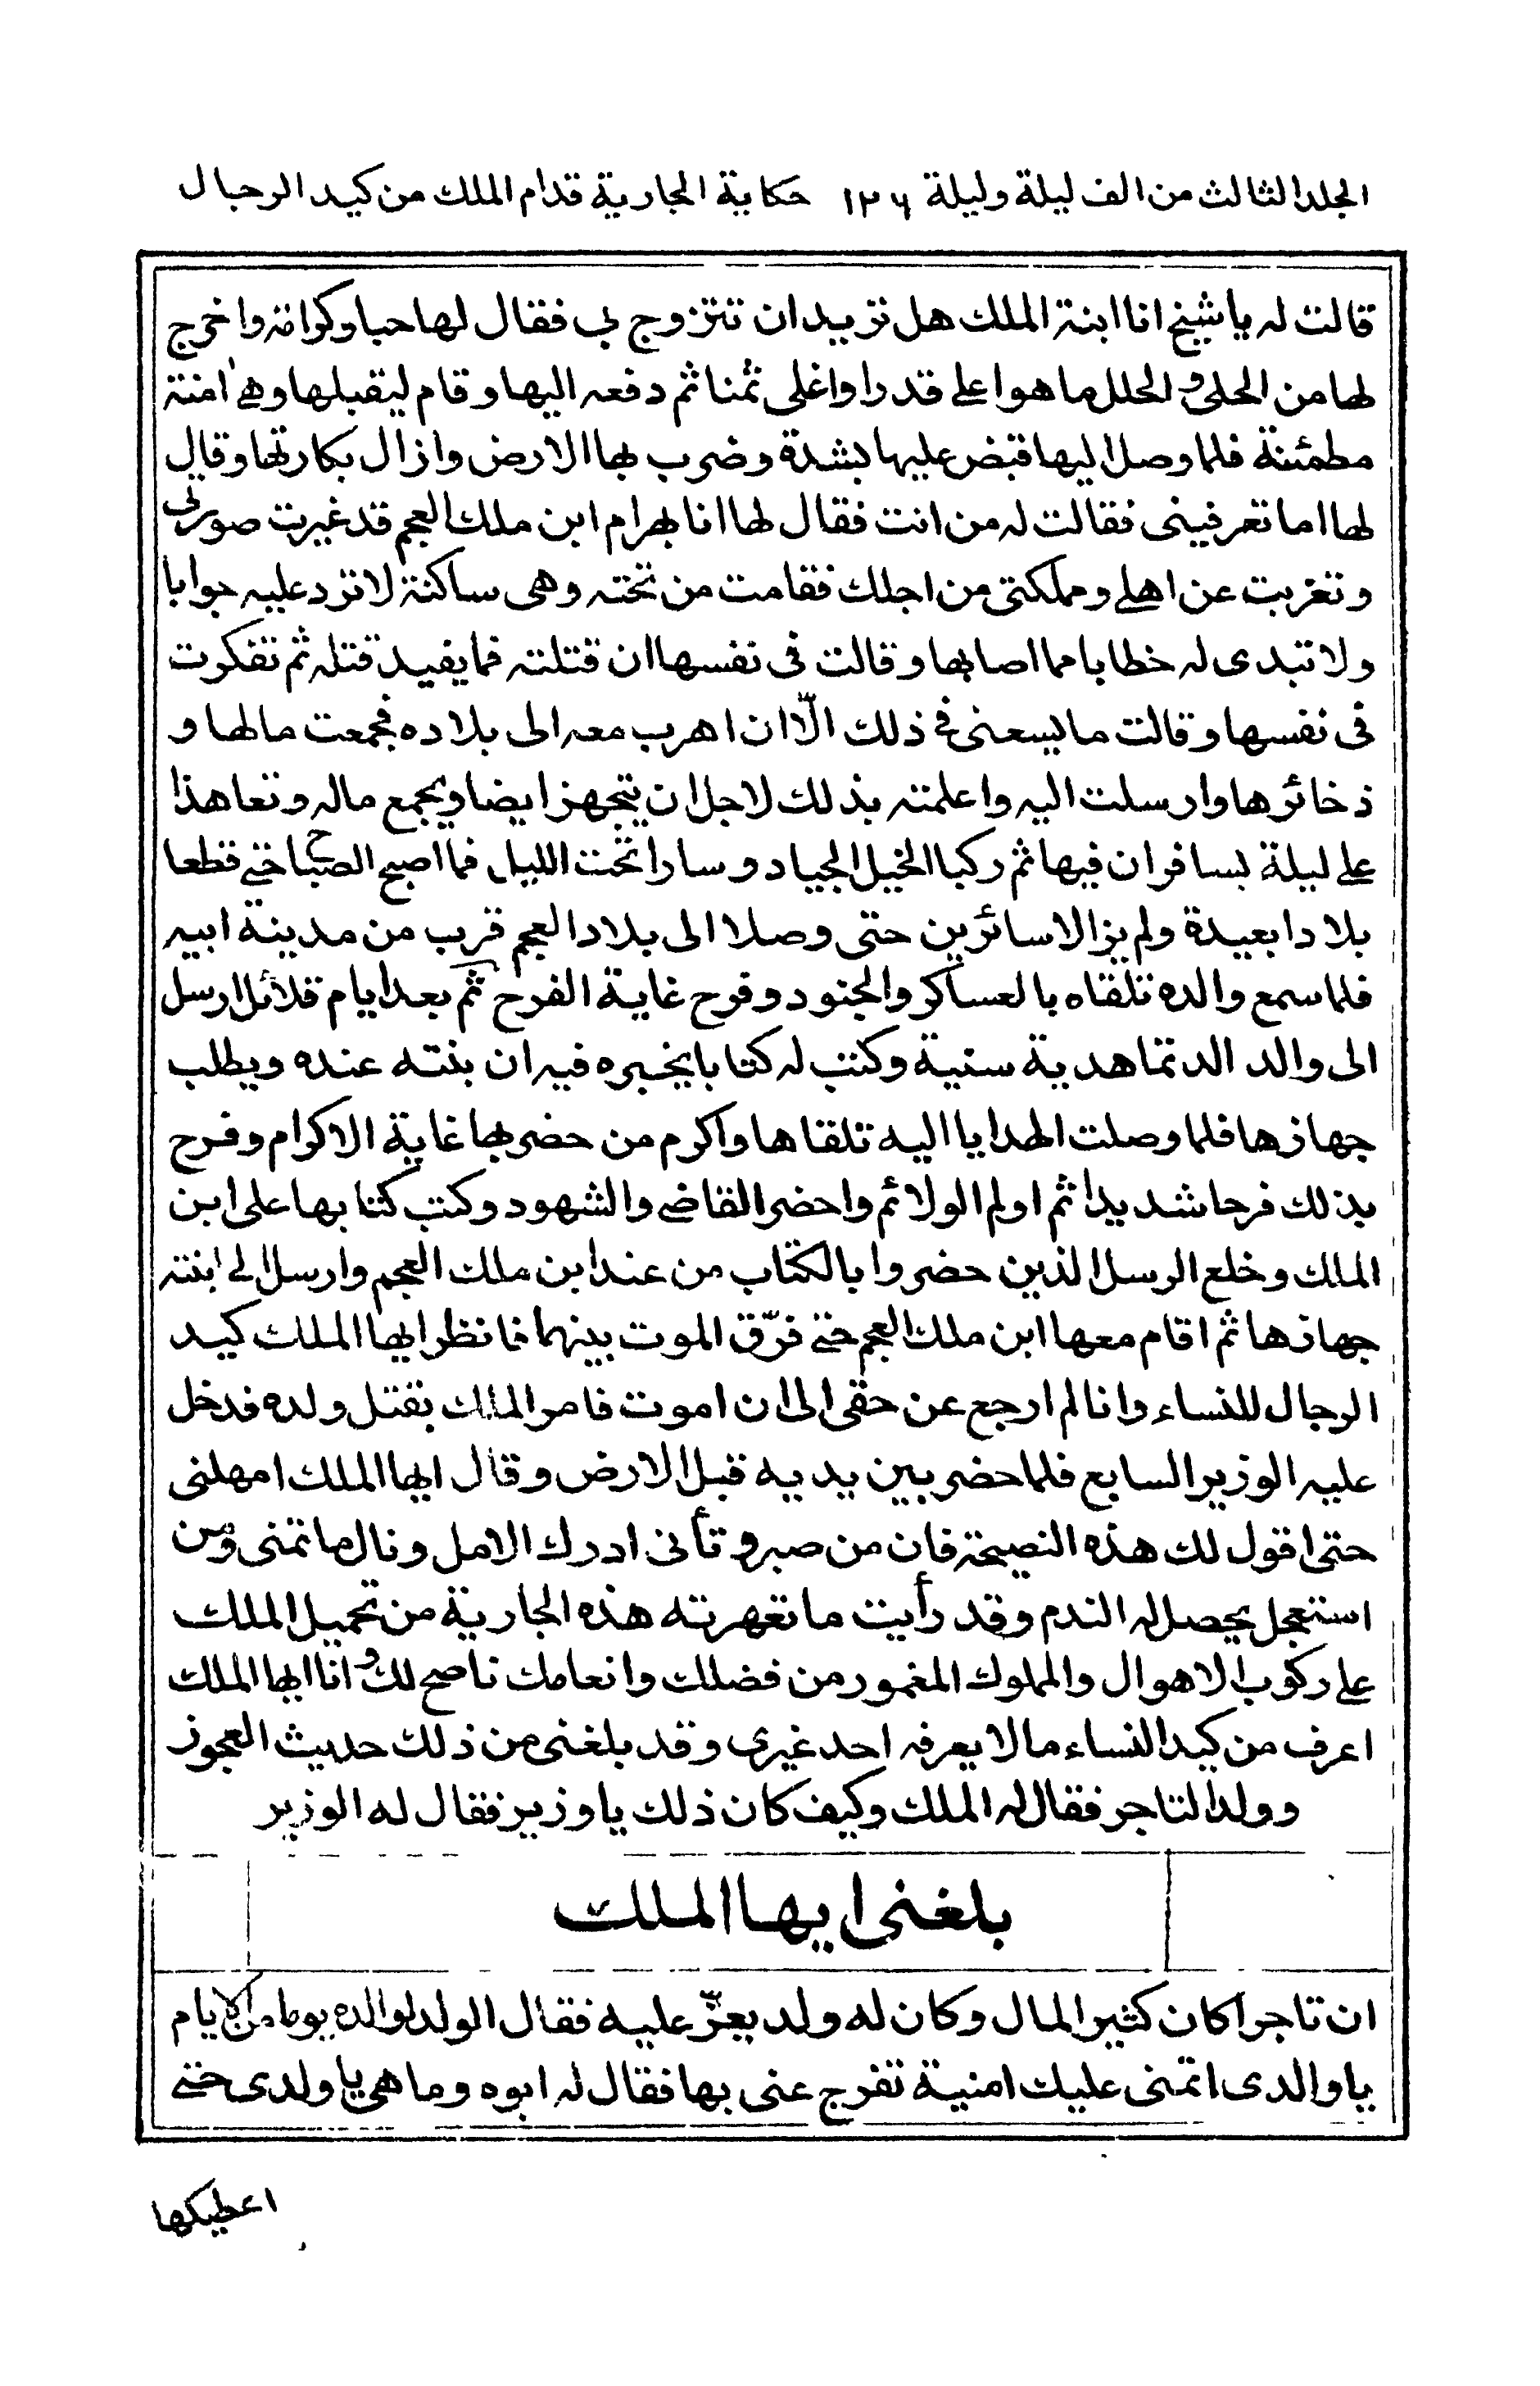 المجلد الثالث من الف ليلة وليلة ١٢٦ حكاية الجارية قدام الملك من كيد الرجال
قالت له يا شيخ انا ابنة الملك هل تريد ان تتزوج بي فقال لها حبا وكرامة واخرج
لها من الحلي و الحلل ما هو اعلى قدرا واغلى ثمنا ثم دفعه اليها وقام ليقبلها وهي امنة
مطمئنة فلما وصل اليها قبض عليها بشدة وضرب بها الارض وازال بكارتها وقال
لها اما تعرفيني فقالت له من انت فقال لها انا بهرام ابن ملك العجم قد غيرت صورتي
وتغربت عن اهلي ومملكتي من اجلك فقامت من تحته وهي ساكتة لا ترد عليه جوابا
ولا تبدى له خطابا مما اصابها وقالت في نفسها ان قتلته فما يفيد قتله ثم تفكرت
في نفسها وقالت ما يسعني في ذلك الّا ان اهرب معه الى بلاده فجمعت مالها و
ذخائرها وارسلت اليه واعلمته بذلك لاجل ان يتجهز ايضا ويجمع ماله وتعاهذا
على ليلة يسافران فيها ثم ركبا الخيل الجياد وسارا تحت الليل فما اصبح الصباح حتى قطعا
بلادا بعيدة ولم يزالا سائرين حتى وصلا الى بلاد العجم قرب من مدينة ابيه
فلما سمع والده تلقاه بالعساكر والجنود وفرح غاية الفرح ثم بعد ايام قلائل ارسل
الى والد الدتما هدية سنية وكتب له كتابا يخبره فيه ان بنته عنده ويطلب
جهازها فلما وصلت الهدايا اليه تلقاها واكرم من حضر بها غاية الاكرام وفرح
بذلك فرحا شديدا ثم اولم الولائم واحضر القاضي والشهود وكتب كتابها على ابن
الملك وخلع الرسل الذين حضروا بالكتاب من عند ابن ملك العجم وارسل الى ابنته
جهازها ثم اقام معها ابن ملك العجم حتى فرّق الموت بينهما فانظر ايها الملك كيد
الرجال للنساء وانا لم ارجع عن حقى الى ان اموت فامر الملك بقتل ولده فدخل
عليه الوزير السابع فلما حضر بين يديه قبل الارض وقال ايها الملك امهلني
حتى اقول لك هذه النصيحة فان من صبر و تأنى ادرك الامل ونال ما تمنى ومن
استعجل يحصل له الندم وقد رأيت ما تعهرته هذه الجارية من تحميل الملك
على ركوب الاهوال والمملوك المغمور من فضلك وانعامك ناصح لك و انا ايها الملك
اعرف من كيد النساء ما لا يعرفه احد غيري وقد بلغني من ذلك حديث العجوز
وولد التاجر فقال له الملك وكيف كان ذلك يا وزير فقال له الوزير
بلغني ايها الملك
ان تاجرا كان كثير المال وكان له ولد يعزّ عليه فقال الولد لوالده يوما من الايام
يا والدى اتمنى عليك امنية تفرج عنى بها فقال له ابوه وما هي يا ولدى حتى
اعطيكها